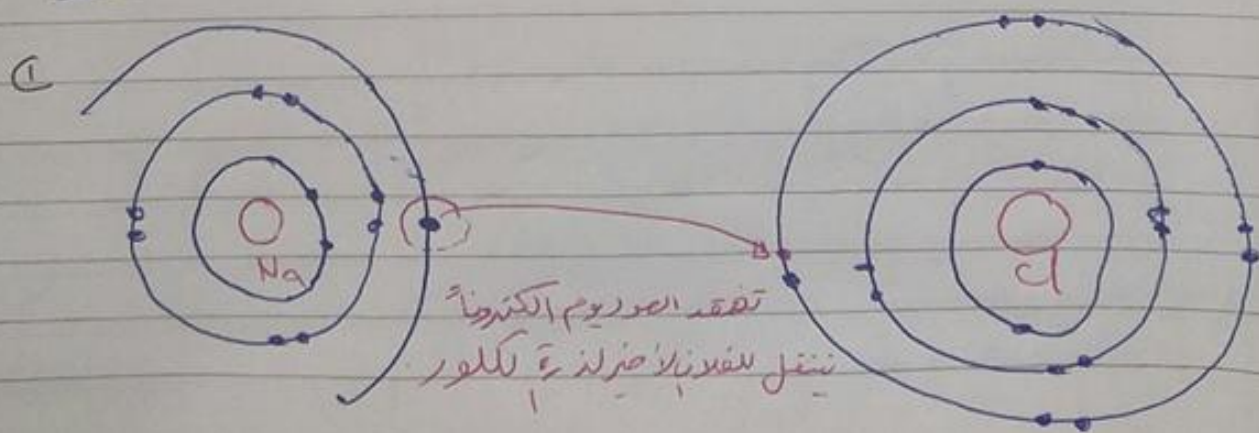 ①
Na
Cl
تفقد الصوديوم الكتروناً
ينتقل للغلاف الأخير لذرة الكلور